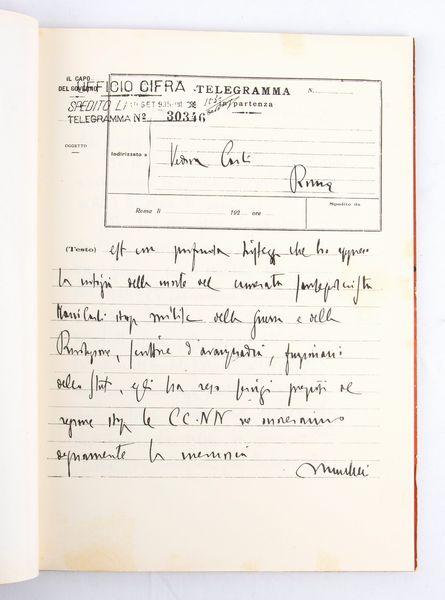 IL CAPO
DEL GOVERNO
UFFICIO CIFRA
TELEGRAMMA
N.
SPEDITO LI SET 935
in partenza
TELEGRAMMA Nº 30346
OGGETTO
Indirizzato a
Vedova Carli
Roma
Roma li 192 ore
Spedito da
(Testo) est con profonda tristezza che ho appreso
la notizia della morte del camerata
Mario Carli stop milite della guerra e della
Rivoluzione, scrittore d'avanguardia, funzionario
dello Stato, egli ha reso servigi preziosi al
regime stop le CC.NN ne onoreranno
degnamente la memoria
Mussolini